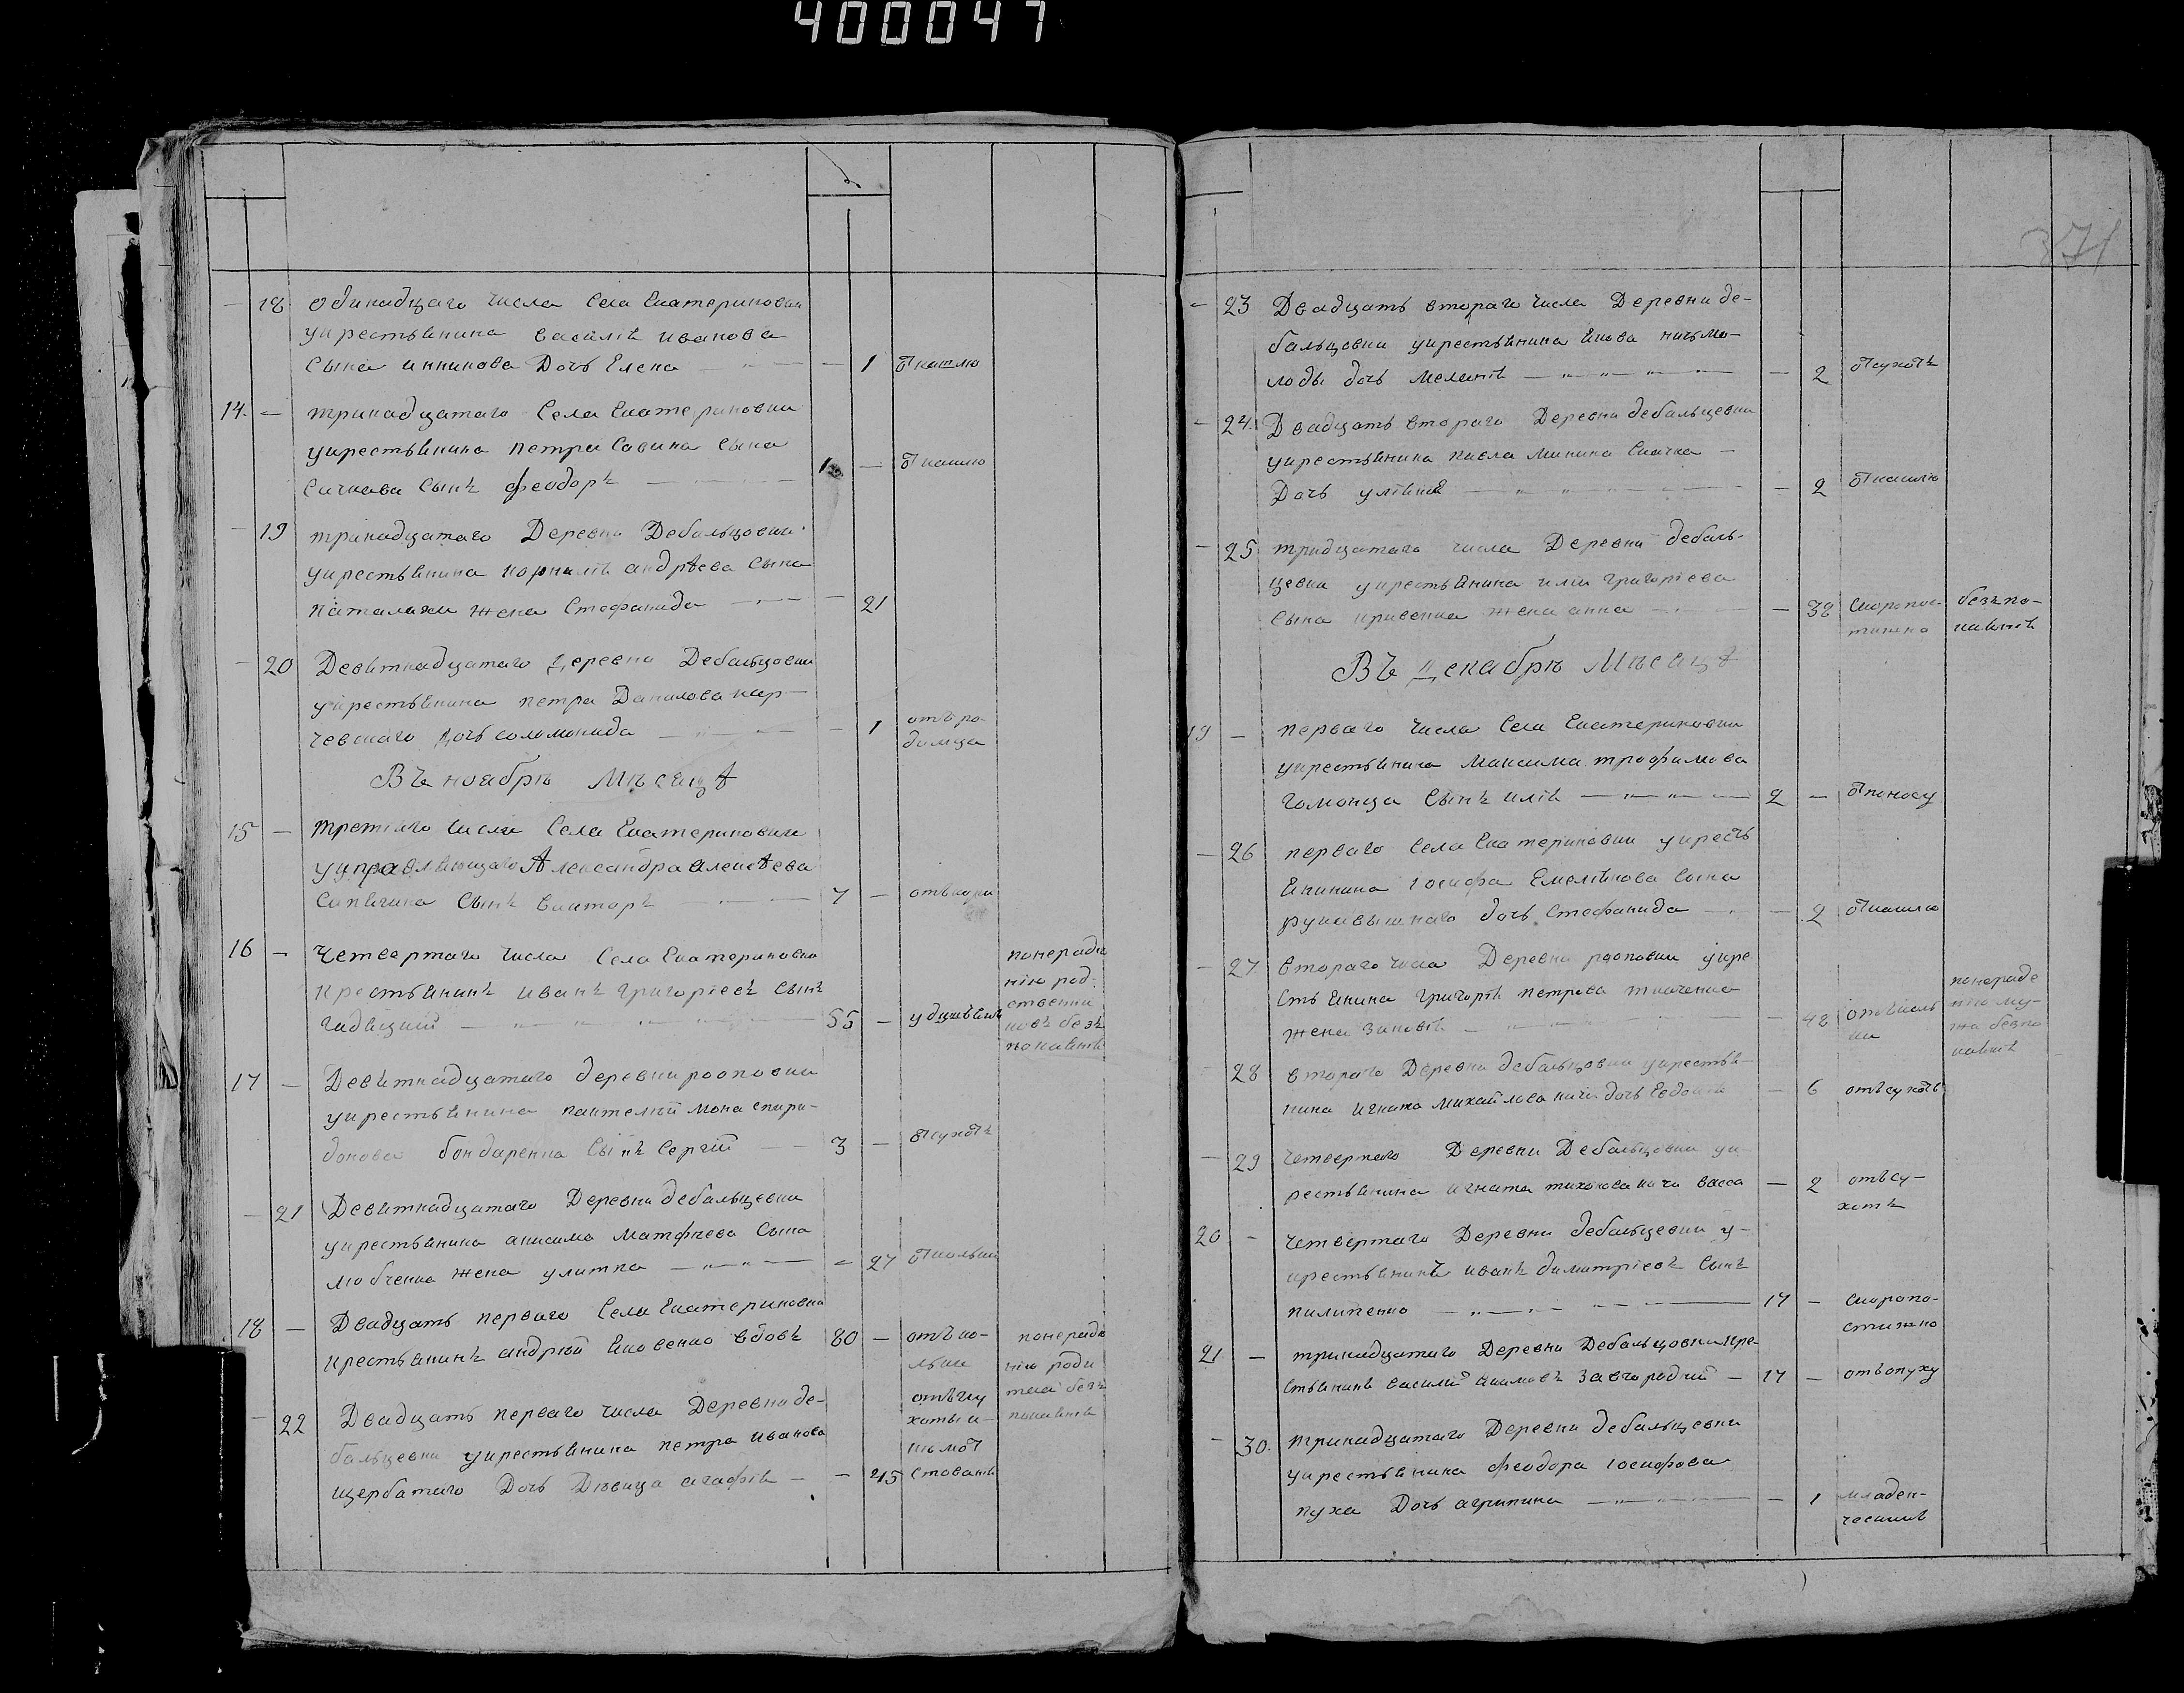 400047
18 одинадцаго числа села Екатериновки
укрестьянина василія иванова
сына Аникова Дочь Елена — 1 Ѿ кашлю
14. — тринадцатаго Села Екатериновки
укрестьянина петра Савина сына
Сичкава Сынъ феодоръ 1 — Ѿ кашлю
— 19 тринадцатаго Деревни Дебальцовки
укрестьянина корнилія андрѣева Сына
паталахи жена Стефанида — 21
— 20 Девятнадцатаго Деревни Дебальцовки
укрестьянина петра Данилова кар-
чевскаго дочь соломонида — 1 отъ ро-
димца
Въ ноябрѣ мѣсяцѣ
15 — третяго числа Села Екатериновки
управляющаго Александра алексѣева
сына Викторъ 7 —
16 — Четвертаго числа Села Екатериновки
крестьянинъ иванъ григоріевъ сынъ
гадяцкий 55 — удушьемъ
понерадѣ
нію род-
ственни
ковъ безъ
покаянія
17 — Девятнадцатаго деревни рооповки
укрестьянина пантелиймона спири-
донова бондаренка Сынъ Сергій 3 — Ѿ сухотъ
— 21 Девятнадцатаго Деревни дебальцевки
укрестьянина анисима матфѣева Сына
любченка жена улитка — 27 Ѿ кольки
18 — Двадцать перваго Села Екатериновки
крестьянинъ андрѣй Яковенко вдовъ 80 — отъ ко-
льки
понерадѣ
нію роди
телей безъ
покаянія
— 22 Двадцать перваго числа Деревни де-
бальцевки укрестьянина петра иванова
щербатаго Дочь Дѣвица агафія — 45
371
— 23 Двадцать втораго числа Деревни де-
бальцевки укрестьянина якова ничьмо-
лоды дочь меланія — 2 Ѿ сухотъ
— 24. Двадцать втораго Деревни дебальцевки
укрестьянина павла минина скачка
Дочь уліяна — 2 Ѿ кашлю
— 25 тридцатаго числа Деревни дебаль-
цевки укрестьянина иліи григоріева
сына кривенка жена анна — 38 скоропос-
тижно
безъ по-
каянія
Въ декабрѣ мѣсяцѣ
19 — перваго числа Села Екатериновки
укрестьянина максима трофимова
гомонца Сынъ илія 2 — Ѿ поносу
— 26 перваго села Екатериновки укресть
янинина іосифа Емеліянова сына
рукавышнаго дочь Стефанида — 2 Ѿ кашлю
— 27 втораго числа Деревни рооповки укре
стьянина григорія петрова ткаченка
жена зиновія — 48 отъ коль
ки
понераде
нію му-
жа безпо
каянія
28 втораго Деревни дебальцовки укрестья-
нина игната михайлова дочь Евдокія — 6 отъ сухотъ
— 29 четвертаго Деревни Дебальцовки ук-
рестьянина игната тихонова васса — 2 отъ су-
хотъ
20 — четвертаго Деревни дебальцевки у-
крестьянинъ иванъ димитріевъ сынъ
пилипенко 17 — скоропо-
стижно
21 — тринадцатаго Деревни Дебальцовки кре-
стьянинъ василий акимовъ загородний — 17 — отъ опуху
— 30. тринадцатаго Деревни дебальцевки
укрестьянина феодора іосифова
пуха Дочь агрипина — 1 младен-
ческимъ